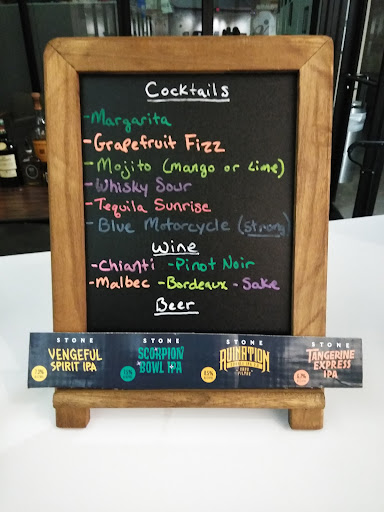 Cocktails
-Margarita
-Grapefruit Fizz
-Mojito (mango or Lime)
-Whisky Sour
-Tequila Sunrise
-Blue Motorcycle (strong)
Wine
-Chianti -Pinot Noir
-Malbec -Bordeaux -Sake
Beer
STONE
VENGEFUL
SPIRIT IPA
STONE
SCORPION
BOWL IPA
STONE
RUINATION
STONE
TANGERINE
EXPRESS
IPA